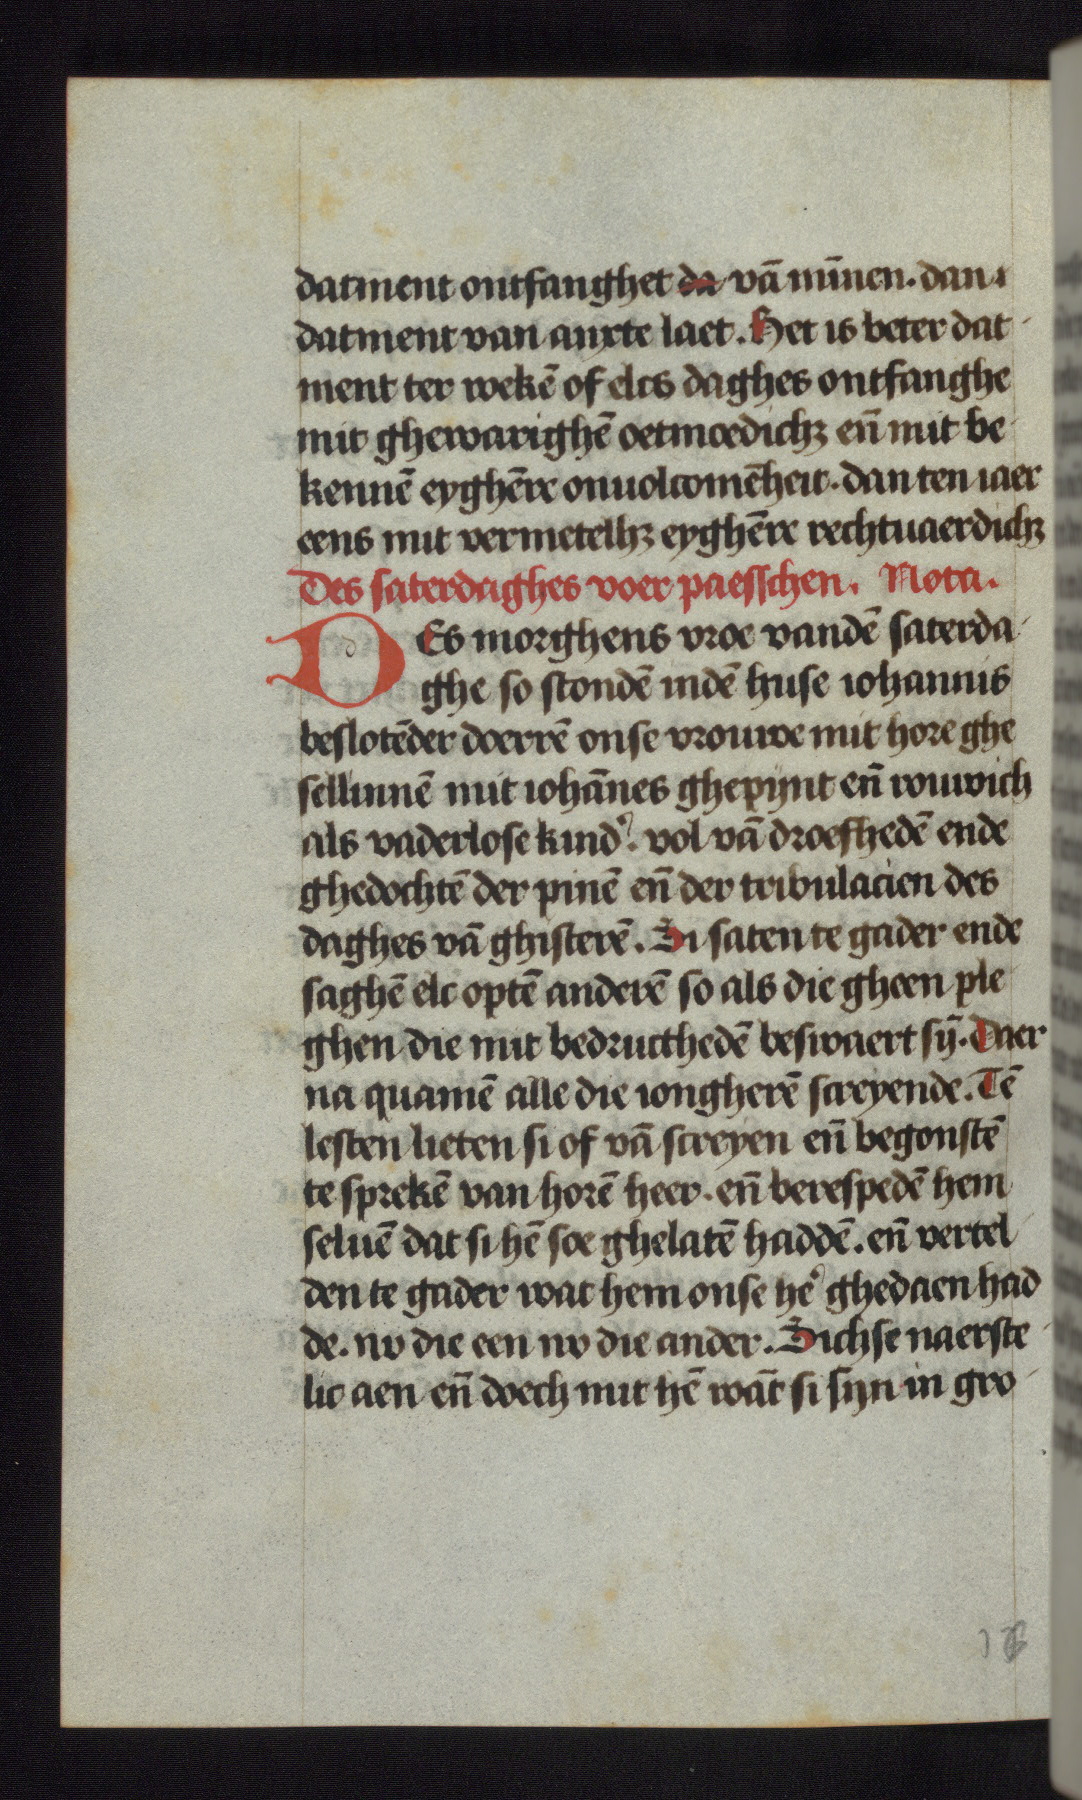 datment ontfanghet da vā minnen. dan
datment van anxte laet. Het is beter dat
ment ter wekē of elcs daghes ontfanghe
mit ghewarighē oetmoedichꝫ en̄ mit be
kennē eyghēre onuolcomēheit. dan ten iaer
eens mit vermetelhꝫ eyghēre rechtuaerdichꝫ
Des saterdaghes voer paesschen. Nota.
DEs morghens vroe vandē saterda
ghe so stondē indē huse iohannis
beslotēder doerrē onse vrouwe mit hore ghe
sellinnē mit iohānes ghepijnt en̄ rouwich
als vaderlose kindʾ. vol vā droefhedē ende
ghedochtē der pinē en̄ der tribulacien des
daghes vā ghisterē. Si saten te gader ende
saghē elc optē anderē so als die gheen ple
ghen die mit bedructhedē beswaert sȳ. Daer
na quamē alle die iongherē screyende. Tē
lesten lieten si of vā screyen en̄ begonstē
te sprekē van horē heer. en̄ berespedē hem
seluē dat si hē soe ghelatē haddē. en̄ vertel
den te gader wat hem onse hēʾ ghedaen had
de. nv die een nv die ander. Sichse naerste
lic aen en̄ doech mit hē wāt si sijn in gro